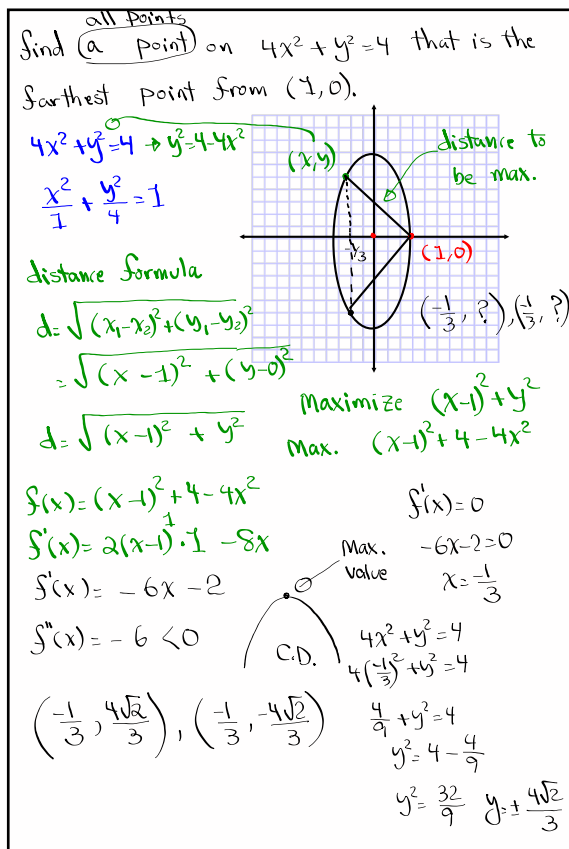 all points
find (a point) on 4x² + y² = 4 that is the
farthest point from (1,0).
4x² + y² = 4 → y² = 4 - 4x²
x²/1 + y²/4 = 1
(x,y)
distance to
be max.
-1/3
(1,0)
(-1/3, ?), (-1/3, ?)
distance formula
d = √((x₁-x₂)² + (y₁-y₂)²)
= √((x-1)² + (y-0)²)
d = √((x-1)² + y²)
Maximize (x-1)² + y²
Max. (x-1)² + 4 - 4x²
f(x) = (x-1)² + 4 - 4x²
f'(x) = 2(x-1)¹·1 - 8x
f'(x) = -6x - 2
f"(x) = -6 < 0
Max.
value
C.D.
f'(x) = 0
-6x-2=0
x = -1/3
4x² + y² = 4
4(-1/3)² + y² = 4
4/9 + y² = 4
y² = 4 - 4/9
y² = 32/9 y = ± 4√2/3
(-1/3, 4√2/3), (-1/3, -4√2/3)